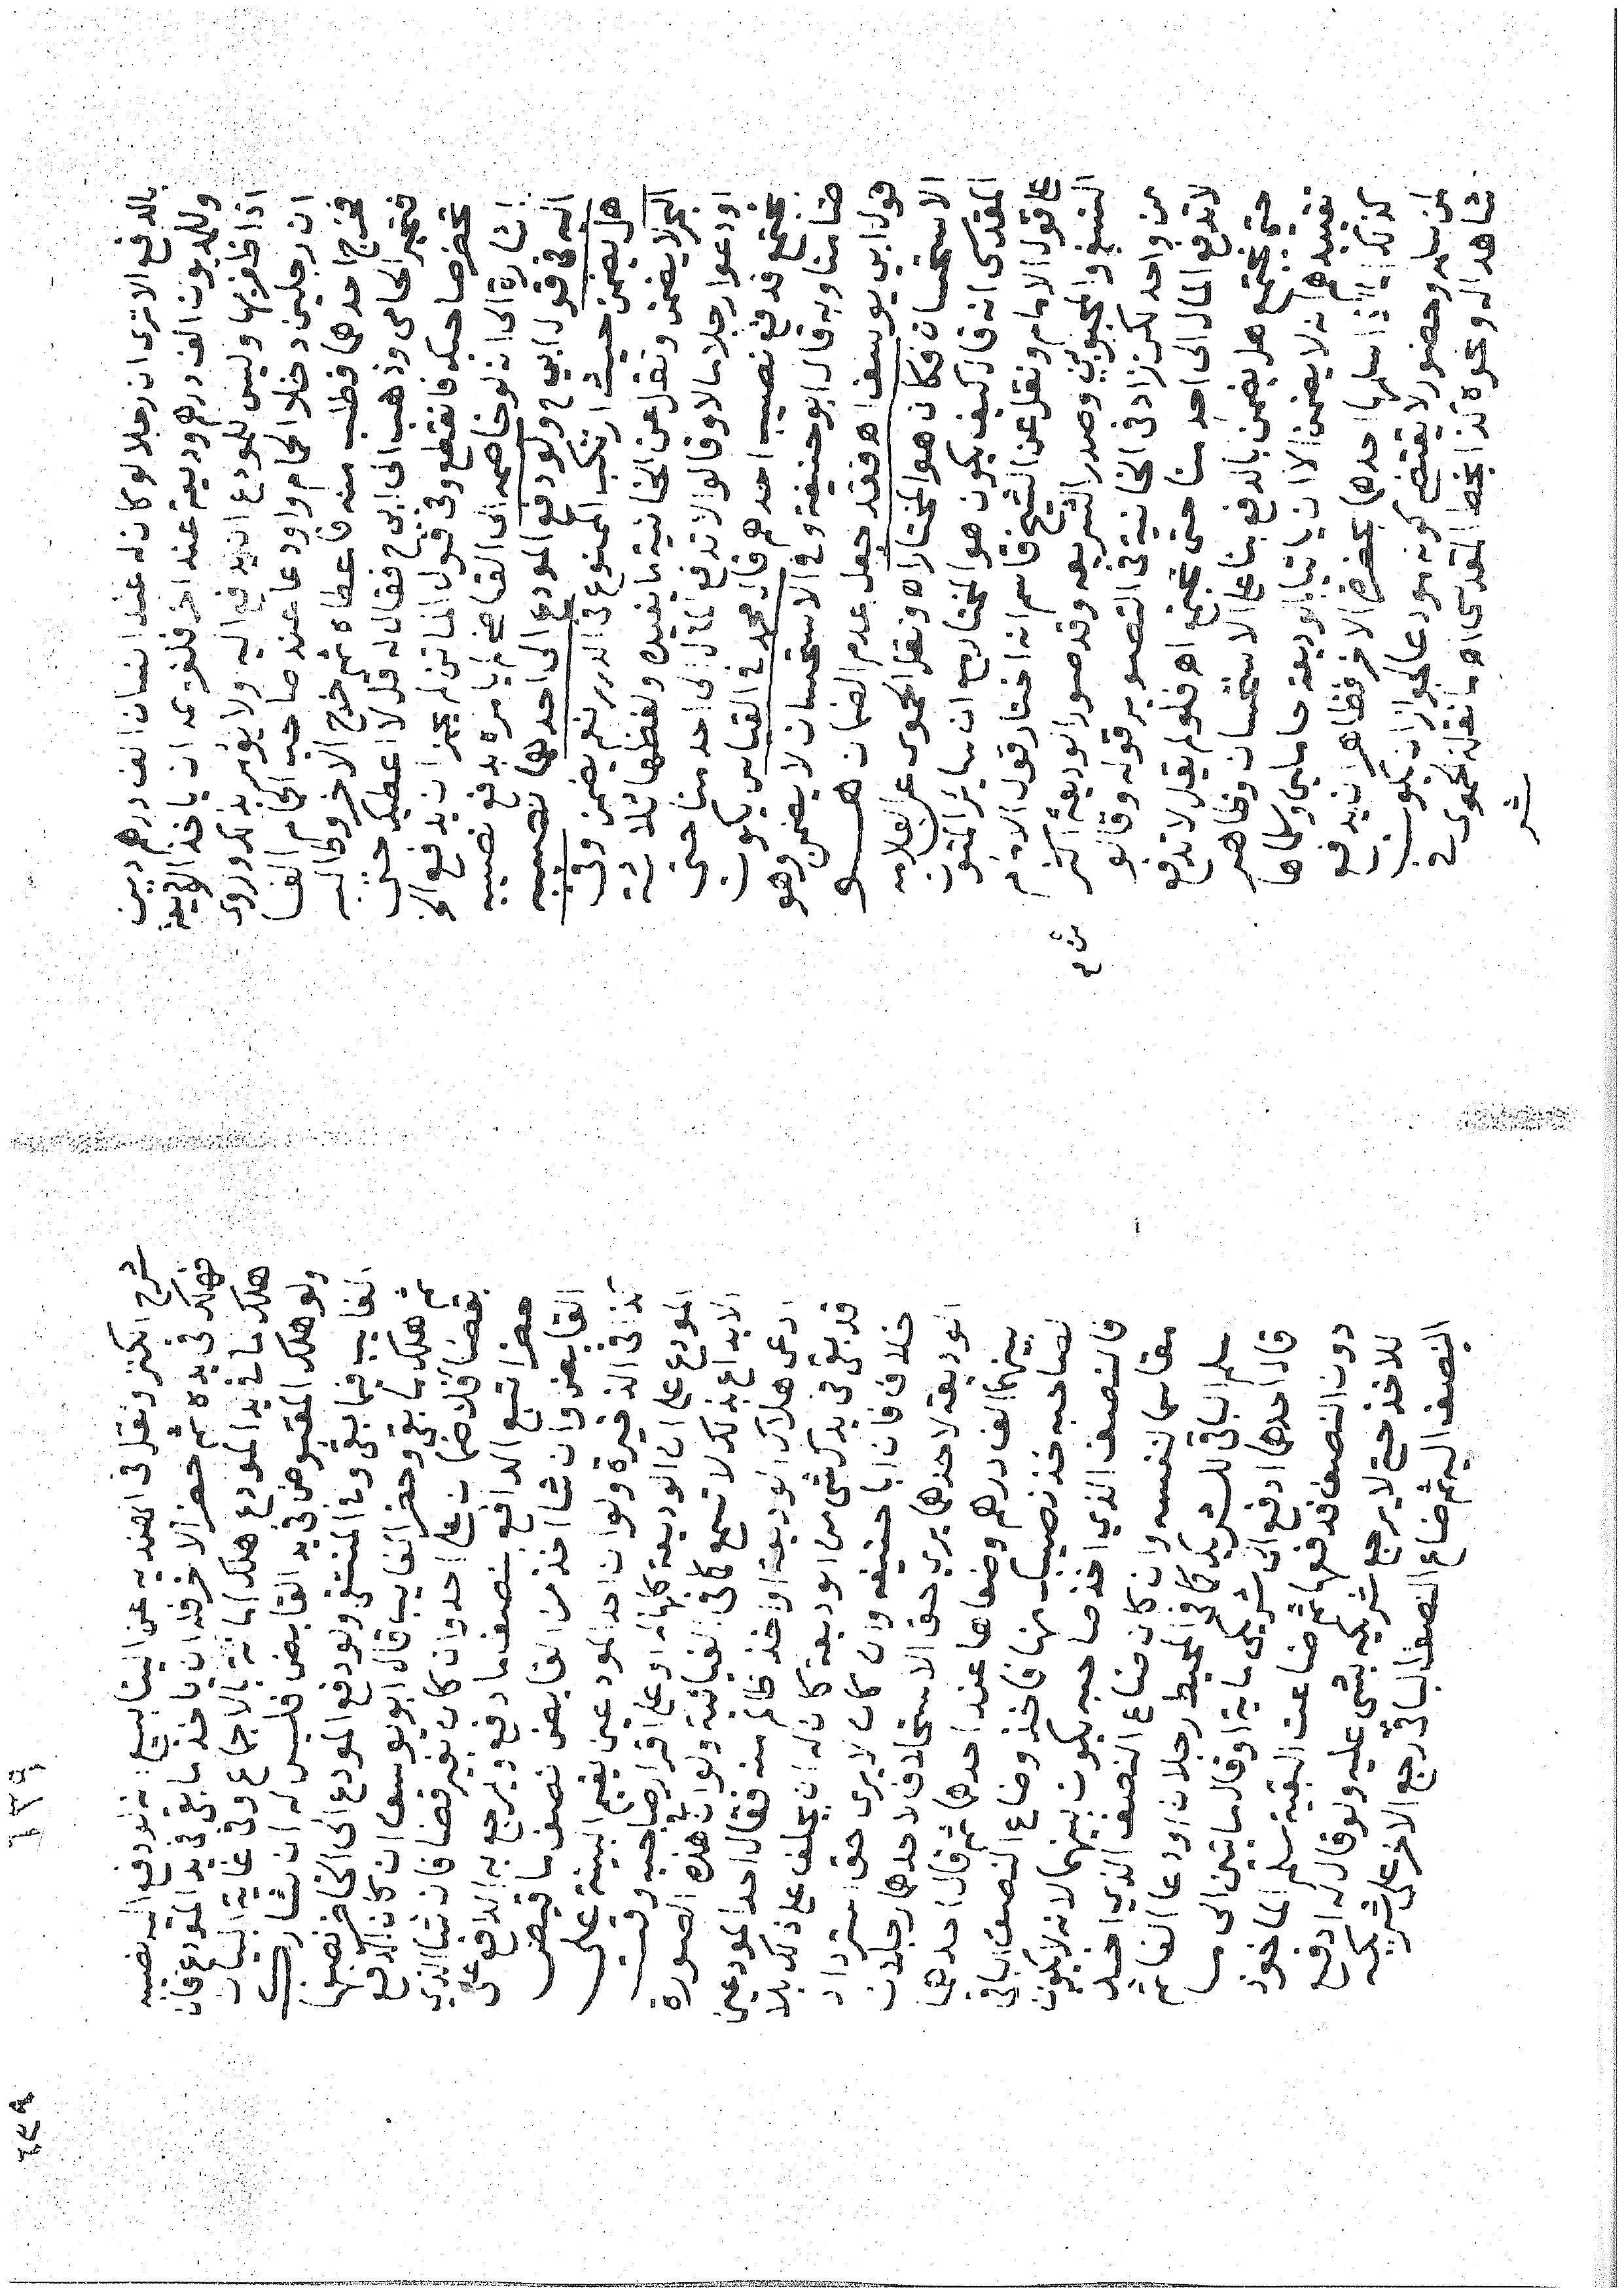 بالدفع الا ترى ان رجلا لو كان له عند انسان الف درهم دين
وللمديون الف درهم وديعة عند اخر فلغريمه ان ياخذ الوديعة
اذا ظفر بها وليس للمودع ان يدفع اليه ولا يؤمر بذلك وروى
ان رجلين دخلا الحمام واودعا عند صاحب الحمام الفا
فخرج احدهما وطلب منه فاعطاه ثم خرج الاخر وطالبه
فتحير الحمامي وذهب الى ابي ح فقال له قل لا اعطيك حتى
تحضر صاحبك فانقطع وفي قول الماتن لم يجز ان يدفع الخ
اشارة الى انه لو خاصمه الى القاضي لم يامره بدفع نصيبه
اليه في قول ابي ح ولو دفع المودع الى احدهما نصيبه
هل يضمن حيث ارتكب الممنوع في الدرر نعم يضمن وفي
البحر لا يضمن ونقل عن الخانية ما نفيده ولفظها ثلاثة
اودعوا رجلا مالا وقالوا لا تدفع المال الى احد منا حتى
نجتمع فدفع نصيب احدهم قال محمد في القياس يكون
ضامنا وبه قال ابو حنيفة وفي الاستحسان لا يضمن وهو
قول ابي يوسف اه فقد جعل عدم الضمان هو
الاستحسان فكان هو المختار اه ونقل الحموى عن العلامه
المقدسى انه قال كيف يكون هو المختار مع ان ساير المتون
على قول الامام ونقل عن الشيخ قاسم انه اختار قول الامام
النسفي والمحبوبي وصدر الشريعه وقد صور الوديعة اكثر
من واحد لكن زاد في الخانية في التصوير قوله وقالو
لا تدفع المال الى احد منا حتى نجتمع اه فلو لم يقل لا تدفع
حتى نجتمع هل يضمن بالدفع بناء على الاستحسان وظاهر
تقييدها انه لا يضمن الا ان ياتيا بالوديعة حاملين وكلاها
كذلك اذا سلمها احدهما بحضرة الاخر فظاهر ان يدفع
لمن سلمه وحضور لا يقتضي كونه مودعا لجواز ان يكون
شاهدا له ونحوه كذا بخط المقدسى اه ما نقله الحموى في
شر
شرح الكنز ونقل في الهنديه عن الينابيع انه لو دفع اليه نصيبه
فهلك في يده ثم حضر الاخر فله ان ياخذ ما بقي في يد المودع فان
هلك ما في يد المودع هلك امانة بالاجماع وفي غاية البيان
ولو هلك المقبوض في يد القابض فليس له ان يشارك
الغايب فيما بقي وفي المنتقى ولو دفع المودع الى الحاضر نصفها
ثم هلك ما بقي وحضر الغايب قال ابو يوسف ان كان الدفع
بقضاء فلا ضمان على احد وان كان بغير قضا فان شا الذي
حضر اتبع الدافع بنصف ما دفع ويرجع به الدافع على
القابض وان شا اخذ من القابض نصف ما قبض
كذا في الذخيرة ولو ان احد المودعين يقيم البينة على
المودع على ان الوديعة كلها له او على اقرار صاحبه وقت
الايداع بذلك لا تسمع كما في الغياثية ولو ان هذه الصورة
ادعى هلاك الوديعة او اخذ ظالم منه فقال احد المودعين
قد بقي في يدك شي من الوديعة كان له ان يحلف على ذلك بلا
خلاف فان ابا حنيفه وان كان لا يرى حق استرداد
الوديعه لاحدهما يرى حق الاستحلاف لاحدهما رجلان
بينهما الف درهم وضعاها عند احدهما ثم قال احدهما
لصاحبه خذ نصيبك منها فاخذ وضاع النصف الباقي
فالنصف الذي اخذ صاحبه يكون بينهما لانه لا يكون
مقاسما لنفسه وان كان ضاع النصف الذي اخذ
سلم الباقي للشريك كما في المحيط رجلان اودعا الفا ثم
قال احدهما ادفع الى شريكي ماية او قال مايتين الى ما
دون النصف فدفعها ثم ضاعت البقية سلم الماخوذ
للاخذ حتى لا يرجع شريكه بشي عليه ولو قال له ادفع
النصف اليه ثم ضاع النصف الباقي رجع الاخر على شريكه